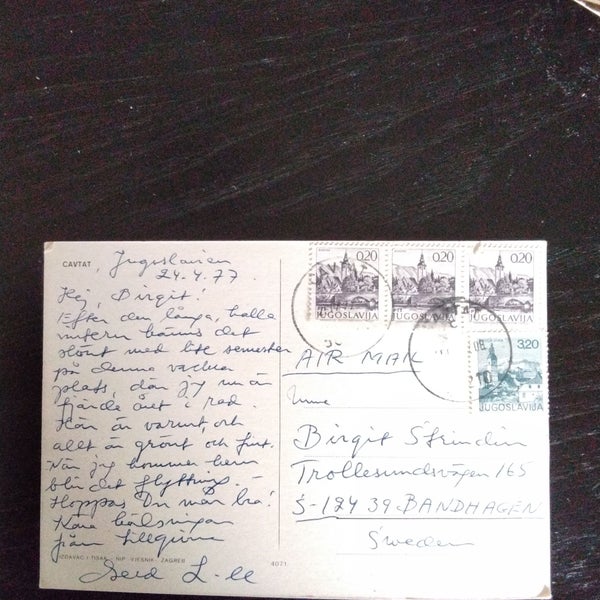 CAVTAT, Jugoslavien
24.4.77.
Hej, Birgit!
Efter den långa, kalla
vintern känns det
skönt med lite semester
på denna vackra
plats, där jag nu är
fjärde året i rad.
Här är varmt, och
allt är grönt och fint.
När jag kommer hem
blir det flyttning. -
Hoppas Du mår bra!
Kära hälsningar
från tillgivna
Gerd L-ll
IZDAVAČ I TISAK NIP VJESNIK - ZAGREB
4071
0,20
JUGOSLAVIJA
0,20
JUGOSLAVIJA
0,20
JUGOSLAVIJA
3,20
JUGOSLAVIJA
AIR MAIL
Birgit
Trollesundsvägen 165
S-124 39 BANDHAGEN
Sweden